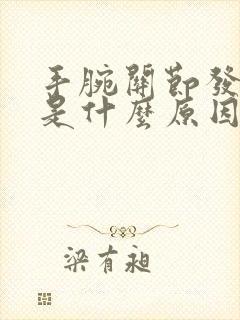 手腕關節發
是什麼原因
梁有昶